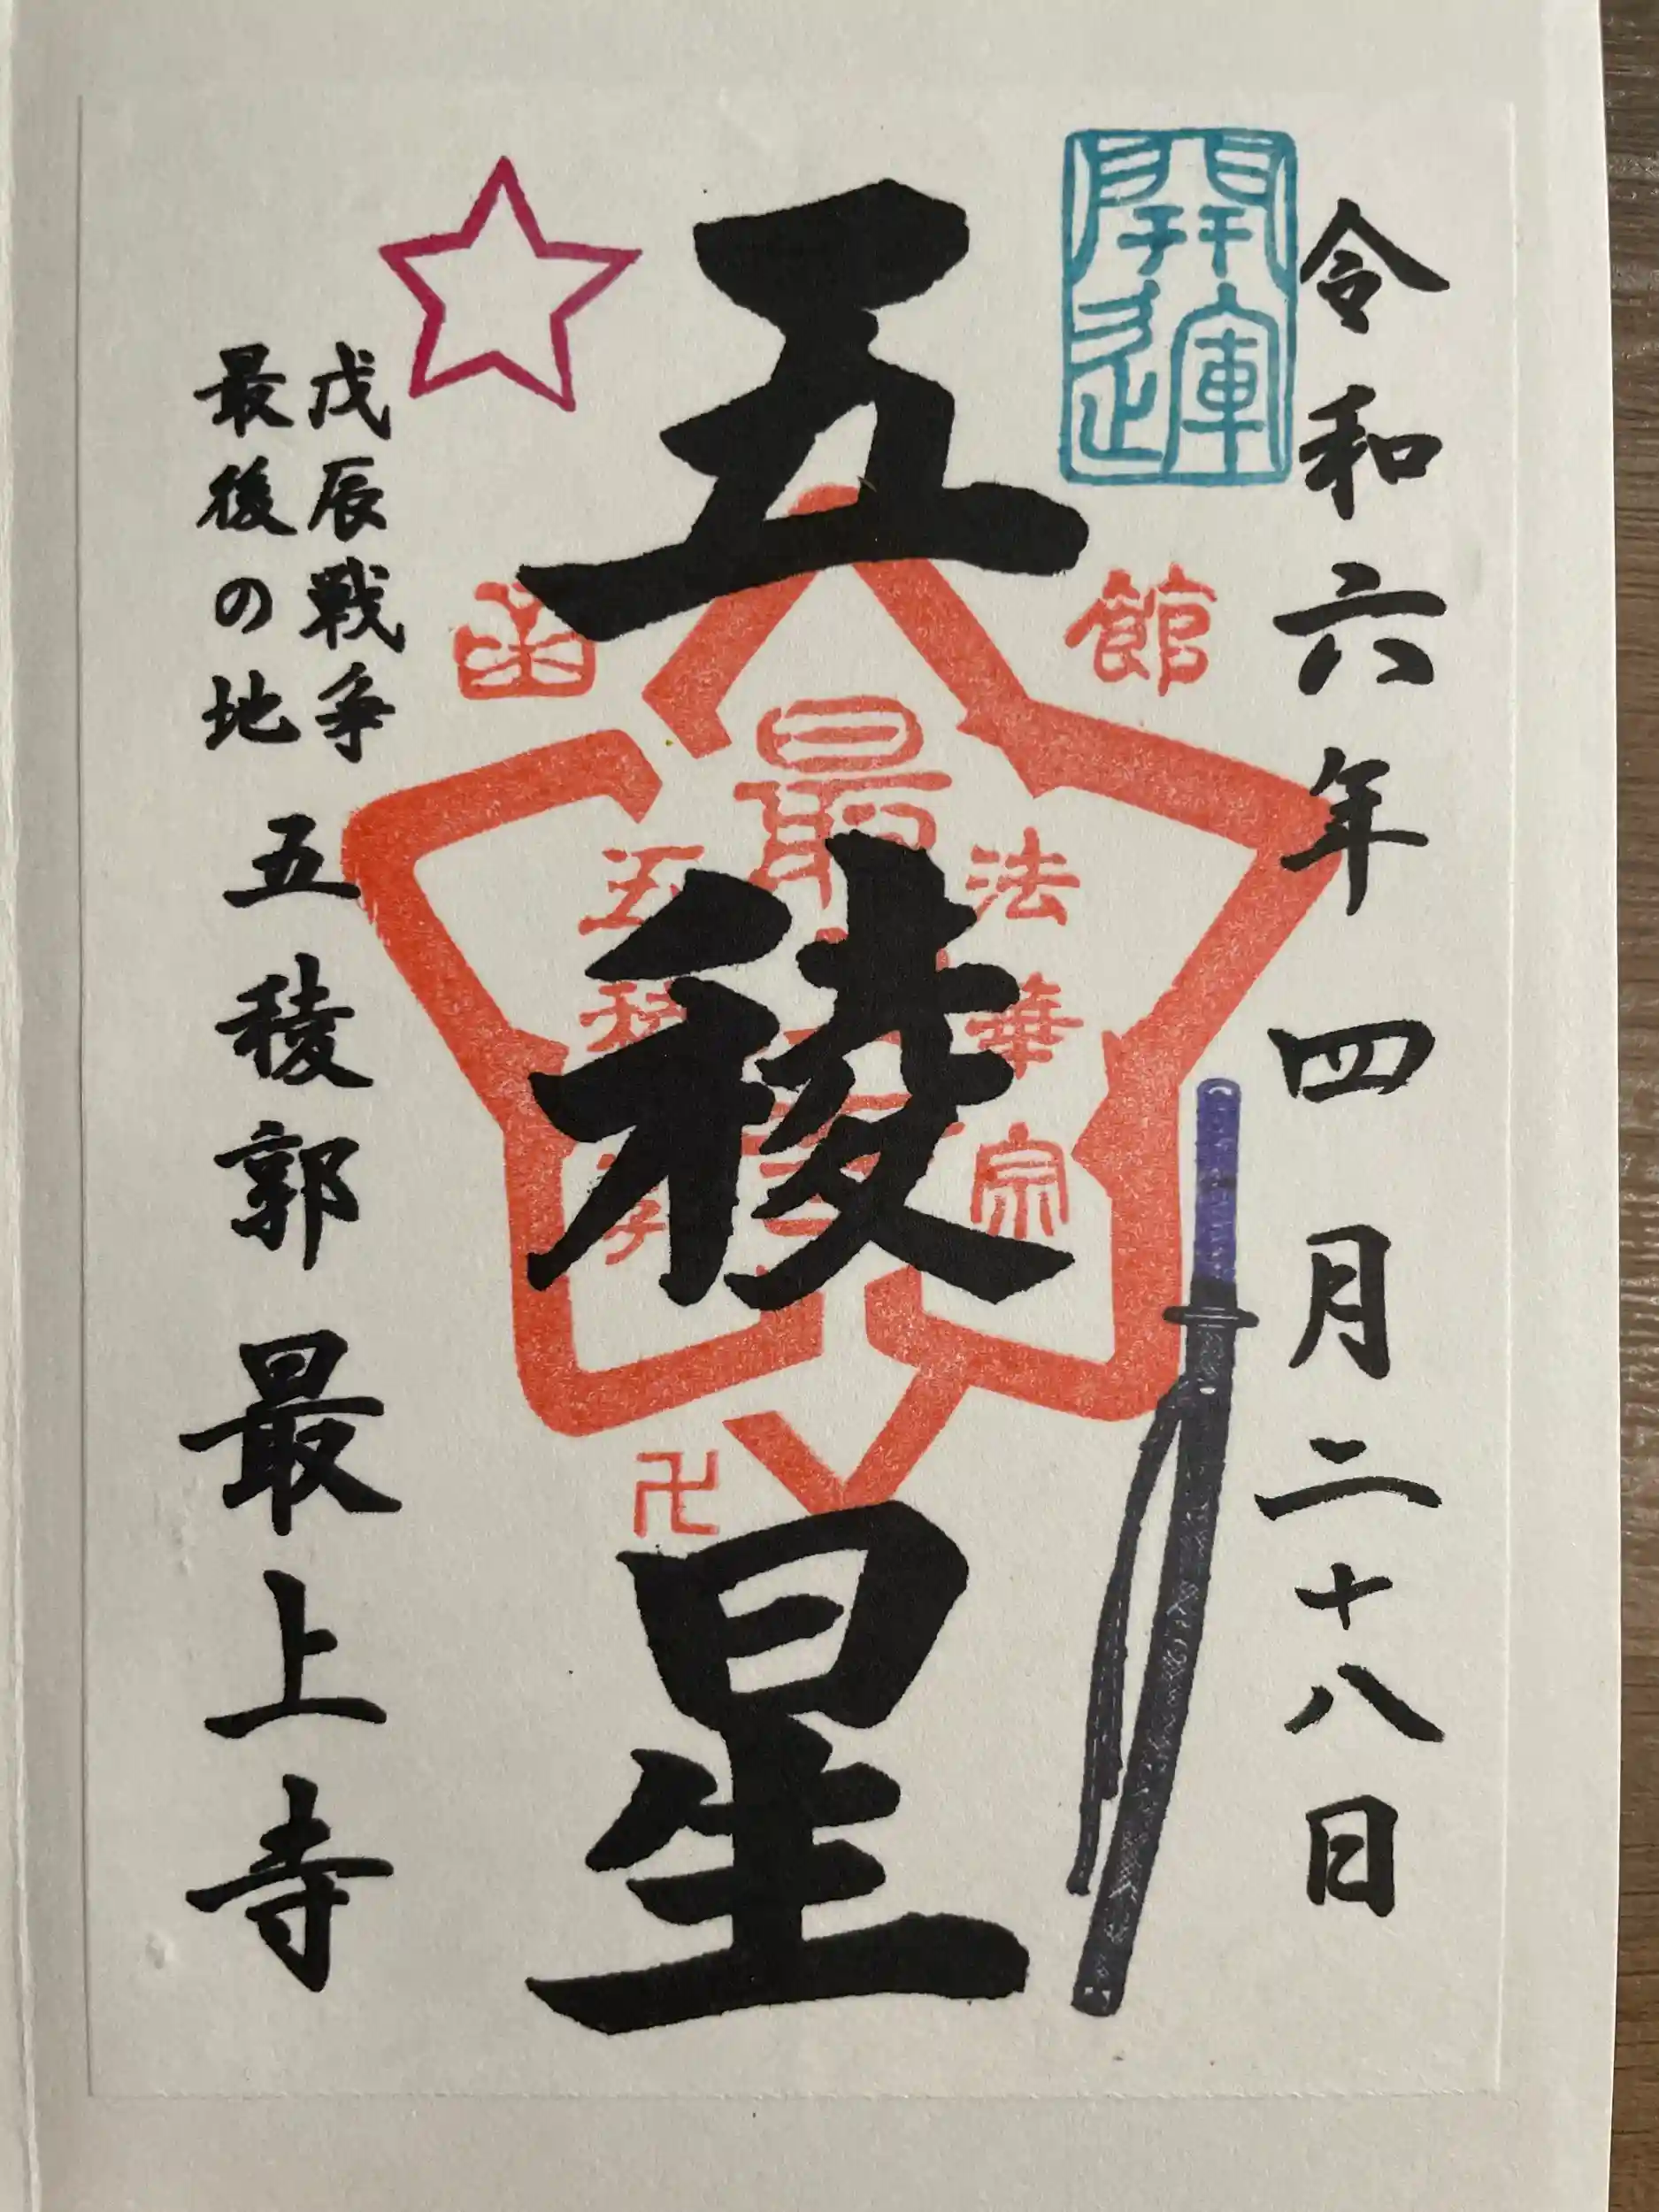 令和六年四月二十八日
開運
五稜星
函館
法華宗
最
五稜
卍
戊辰戦争
最後の地
五稜郭 最上寺